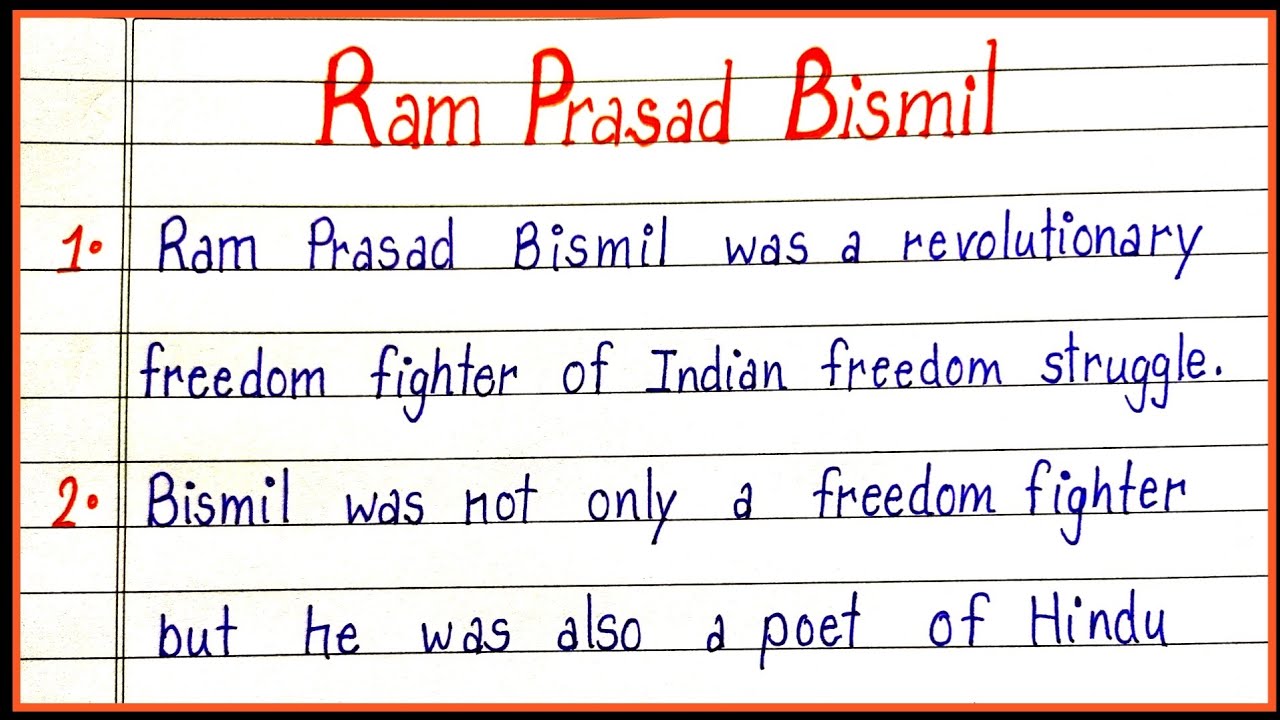 Ram Prasad Bismil
1. Ram Prasad Bismil was a revolutionary
freedom fighter of Indian freedom struggle.
2. Bismil was not only a freedom fighter
but he was also a poet of Hindu